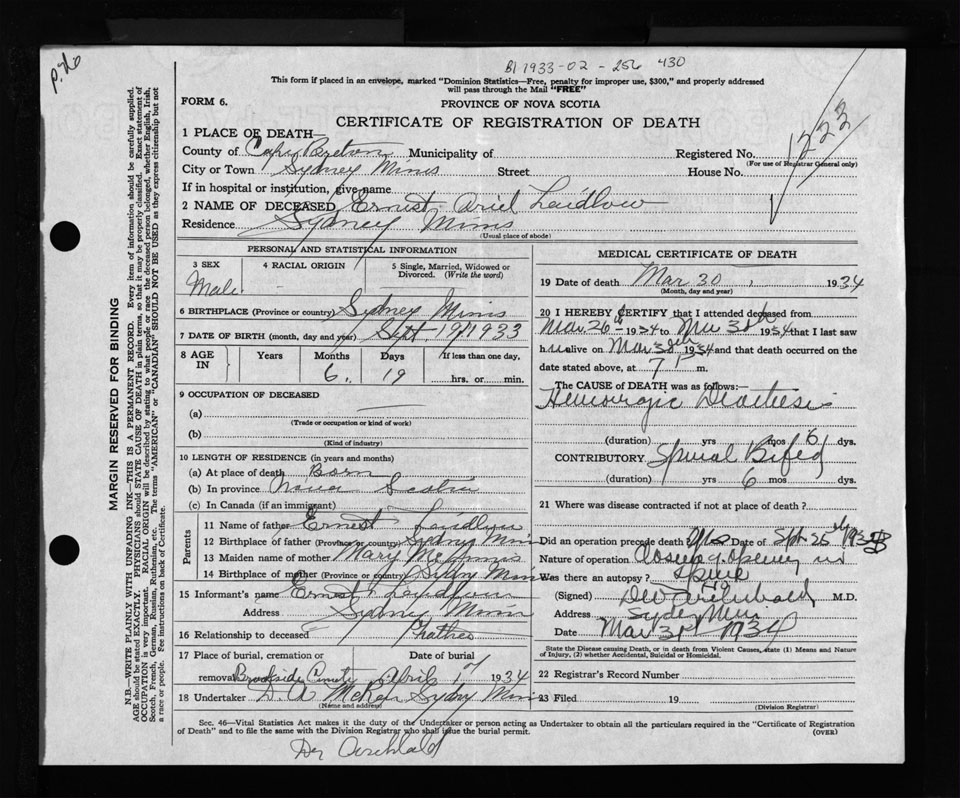 P. 20
B1 1933-02-256430
This form if placed in an envelope, marked "Dominion Statistics—Free, penalty for improper use, $300," and properly addressed
will pass through the Mail "FREE"
FORM 6.
PROVINCE OF NOVA SCOTIA
CERTIFICATE OF REGISTRATION OF DEATH
1 PLACE OF DEATH—
County of Cape Breton Municipality of Registered No. 1223
(For use of Registrar General only)
City or Town Sydney Mines Street House No.
If in hospital or institution, give name
2 NAME OF DECEASED Ernest Ariel Laidlow
Residence Sydney Mines
(Usual place of abode)
PERSONAL AND STATISTICAL INFORMATION
3 SEX 4 RACIAL ORIGIN 5 Single, Married, Widowed or
Divorced. (Write the word)
Male
6 BIRTHPLACE (Province or country) Sydney Mines
7 DATE OF BIRTH (month, day and year) Sept. 19/1933
8 AGE IN Years Months Days If less than one day,
6. 19 hrs. or min.
9 OCCUPATION OF DECEASED
(a)
(Trade or occupation or kind of work)
(b)
(Kind of industry)
10 LENGTH OF RESIDENCE (in years and months)
(a) At place of death Born
(b) In province Nova Scotia
(c) In Canada (if an immigrant)
Parents
11 Name of father Ernest Laidlow
12 Birthplace of father (Province or country) Sydney Mines
13 Maiden name of mother Mary McGinnis
14 Birthplace of mother (Province or country) Sydney Mines
15 Informant's name Ernest Laidlow
Address Sydney Mines
16 Relationship to deceased Father
17 Place of burial, cremation or Date of burial
removal Brookside Cemetery April 1 1934
18 Undertaker D. A. McRae Sydney Mines
(Name and address)
MEDICAL CERTIFICATE OF DEATH
19 Date of death Mar 30, 1934
(Month, day and year)
20 I HEREBY CERTIFY that I attended deceased from
Mar 26th 1934 to Mar 30th 1934 that I last saw
him alive on Mar 30th 1934 and that death occurred on the
date stated above, at 7 P m.
The CAUSE OF DEATH was as follows:—
Hemorragic Diathesis
(duration) yrs mos 6 dys.
CONTRIBUTORY Spinal Bifed
(duration) yrs 6 mos dys.
21 Where was disease contracted if not at place of death?
Did an operation precede death yes Date of Sept 25th 1933
Nature of operation Closing of opening in
Spine
Was there an autopsy? no
(Signed) D W Archibald M.D.
Address Sydney Mines
Date Mar 31st 1934
State the Disease causing Death, or in death from Violent Causes, state (1) Means and
Nature of Injury, (2) whether Accidental, Suicidal or Homicidal.
22 Registrar's Record Number
23 Filed 19
(Division Registrar)
Sec. 46—Vital Statistics Act makes it the duty of the Undertaker or person acting as Undertaker to obtain all the particulars required in the "Certificate of Registration
of Death" and to file the same with the Division Registrar who shall issue the burial permit. (OVER)
Dr Archibald
MARGIN RESERVED FOR BINDING
N.B.—WRITE PLAINLY WITH UNFADING INK—THIS IS A PERMANENT RECORD. Every item of information should be carefully supplied.
AGE should be stated EXACTLY. PHYSICIANS should STATE CAUSE OF DEATH in plain terms, so that it may be properly classified. Exact statement of
OCCUPATION is very important. RACIAL ORIGIN will be described by stating to what people or race the deceased person belonged, whether English, Irish,
Scotch, French, German, Russian, Ruthenian, etc. The terms "AMERICAN" or "CANADIAN" SHOULD NOT BE USED as they express citizenship but not
a race or people. See instructions on back of Certificate.